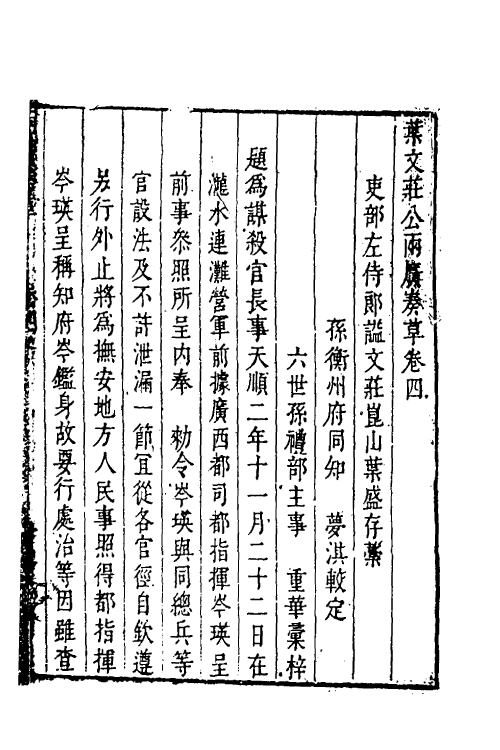 葉文莊公兩廣奏草卷四
吏部左侍郎諡文莊崑山葉盛存藁
孫衡州府同知　夢淇較定
六世孫禮部主事　重華彙梓
題為謀殺官長事天順二年十一月二十二日在
瀧水連灘營軍前據廣西都司都指揮岑瑛呈
前事叅照所呈内奉　勑令岑瑛與同總兵等
官設法及不許泄漏一節冝從各官徑自欽遵
另行外止將為撫安地方人民事照得都指揮
岑瑛呈稱知府岑鑑身故要行處治等因雖查